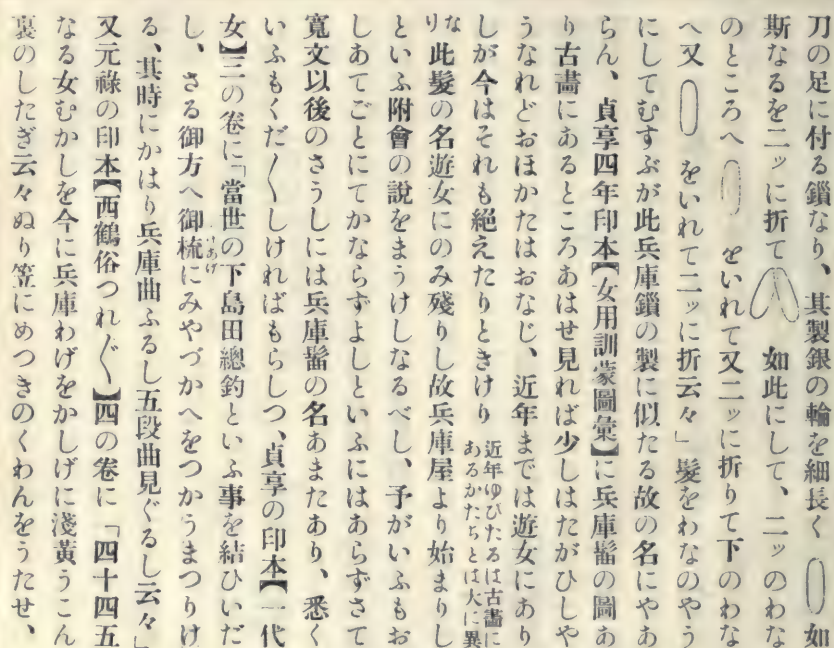 刀の足に付る鎖なり、其製銀の輪を細長く 如
斯なるを二ッに折て 如此にして、二ッのわな
のところへ をいれて又二ッに折りて下のわな
へ又 をいれて二ッに折云々」髮をわなのやう
にしてむすぶが此兵庫鎖の製に似たる故の名にやあ
らん、貞享四年印本【女用訓蒙圖彙】に兵庫髷の圖あ
り古畵にあるところあはせ見れば少しはたがひしや
うなれどおほかたはおなじ、近年までは遊女にあり
しが今はそれも絕えたりときけり 近年ゆひたるは古畵に
あるかたちとは大に異
なり 此髮の名遊女にのみ殘りし故兵庫屋より始まりし
といふ附會の說をまうけしなるべし、予がいふもお
しあてごとにてかならずよしといふにはあらずさて
寬文以後のさうしには兵庫髷の名あまたあり、悉く
いふもくだ〳〵しければもらしつ、貞享の印本【一代
女】三の卷に「當世の下島田總釣といふ事を結ひいだ
し、さる御方へ御梳にみやづかへをつかうまつりけ
りあげ
る、其時にかはり兵庫曲ふるし五段曲見ぐるし云々」
又元祿の印本【西鶴俗つれ〴〵】四の卷に「四十四五
なる女むかしを今に兵庫わげをかしげに淺黃うこん
裏のしたぎ云々ぬり笠にめつきのくわんをうたせ、